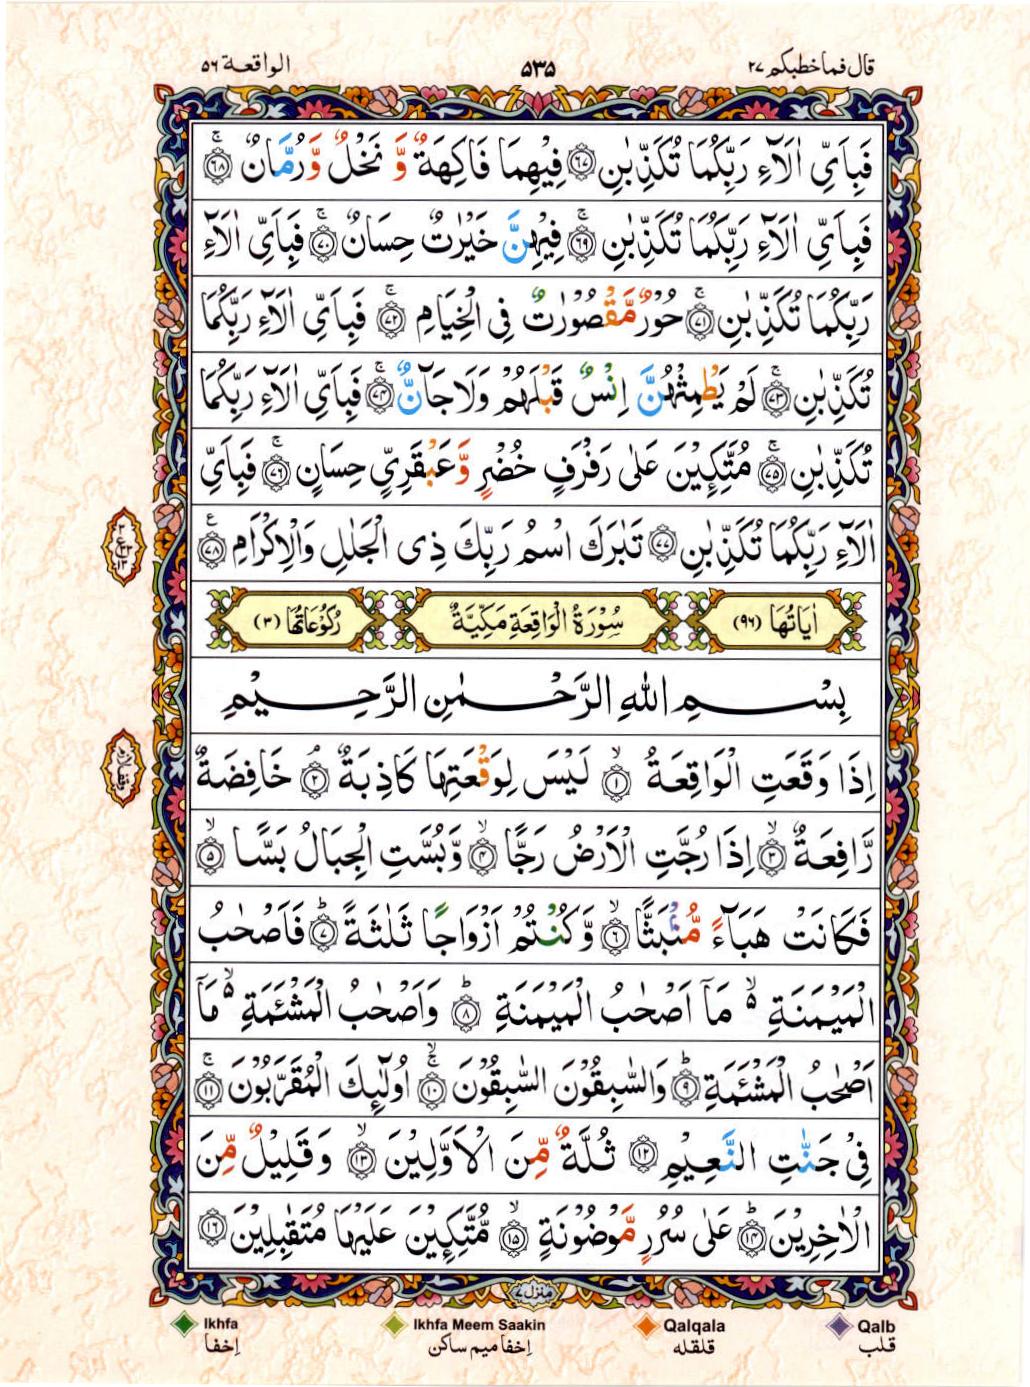 قال فماخطبكم ٢٧
۵۳۵
الواقعة ۵٦
فَبِاَىِّ اٰلَآءِ رَبِّكُمَا تُكَذِّبٰنِ ﴿٦٧﴾ فِيْهِمَا فَاكِهَةٌ وَّ نَخْلٌ وَّرُمَّانٌ ۚ ﴿٦٨﴾
فَبِاَىِّ اٰلَآءِ رَبِّكُمَا تُكَذِّبٰنِ ۚ ﴿٦٩﴾ فِيْهِنَّ خَيْرٰتٌ حِسَانٌ ۚ ﴿٧٠﴾ فَبِاَىِّ اٰلَآءِ
رَبِّكُمَا تُكَذِّبٰنِ ۚ ﴿٧١﴾ حُوْرٌ مَّقْصُوْرٰتٌ فِى الْخِيَامِ ۚ ﴿٧٢﴾ فَبِاَىِّ اٰلَآءِ رَبِّكُمَا
تُكَذِّبٰنِ ۚ ﴿٧٣﴾ لَمْ يَطْمِثْهُنَّ اِنْسٌ قَبْلَهُمْ وَلَا جَآنٌّ ۚ ﴿٧٤﴾ فَبِاَىِّ اٰلَآءِ رَبِّكُمَا
تُكَذِّبٰنِ ۚ ﴿٧٥﴾ مُتَّكِـِٕيْنَ عَلٰى رَفْرَفٍ خُضْرٍ وَّعَبْقَرِىٍّ حِسَانٍ ۚ ﴿٧٦﴾ فَبِاَىِّ
اٰلَآءِ رَبِّكُمَا تُكَذِّبٰنِ ﴿٧٧﴾ تَبٰرَكَ اسْمُ رَبِّكَ ذِى الْجَلٰلِ وَالْاِكْرَامِ ﴿٧٨﴾
اٰيَاتُهَا (٩٦)
سُوْرَةُ الْوَاقِعَةِ مَكِّيَّةٌ
رُكُوْعَاتُهَا (٣)
بِسْمِ اللهِ الرَّحْمٰنِ الرَّحِيْمِ
اِذَا وَقَعَتِ الْوَاقِعَةُ ۙ ﴿١﴾ لَيْسَ لِوَقْعَتِهَا كَاذِبَةٌ ۘ ﴿٢﴾ خَافِضَةٌ
رَّافِعَةٌ ۙ ﴿٣﴾ اِذَا رُجَّتِ الْاَرْضُ رَجًّا ۙ ﴿٤﴾ وَّبُسَّتِ الْجِبَالُ بَسًّا ۙ ﴿۵﴾
فَكَانَتْ هَبَآءً مُّنْۢبَثًّا ۙ ﴿٦﴾ وَّكُنْتُمْ اَزْوَاجًا ثَلٰثَةً ؕ ﴿٧﴾ فَاَصْحٰبُ
الْمَيْمَنَةِ ۙ۬ مَآ اَصْحٰبُ الْمَيْمَنَةِ ؕ ﴿٨﴾ وَاَصْحٰبُ الْمَشْـَٔمَةِ ۙ۬ مَآ
اَصْحٰبُ الْمَشْـَٔمَةِ ؕ ﴿٩﴾ وَالسّٰبِقُوْنَ السّٰبِقُوْنَ ۚ ۙ ﴿١٠﴾ اُولٰٓئِكَ الْمُقَرَّبُوْنَ ۚ ﴿١١﴾
فِىْ جَنّٰتِ النَّعِيْمِ ﴿١٢﴾ ثُلَّةٌ مِّنَ الْاَوَّلِيْنَ ۙ ﴿١٣﴾ وَقَلِيْلٌ مِّنَ
الْاٰخِرِيْنَ ؕ ﴿١٤﴾ عَلٰى سُرُرٍ مَّوْضُوْنَةٍ ۙ ﴿١۵﴾ مُّتَّكِـِٕيْنَ عَلَيْهَا مُتَقٰبِلِيْنَ ﴿١٦﴾
وقف لازم
منزل ٧
Ikhfa
اِخفا
Ikhfa Meem Saakin
اِخفا میم ساکن
Qalqala
قلقله
Qalb
قلب